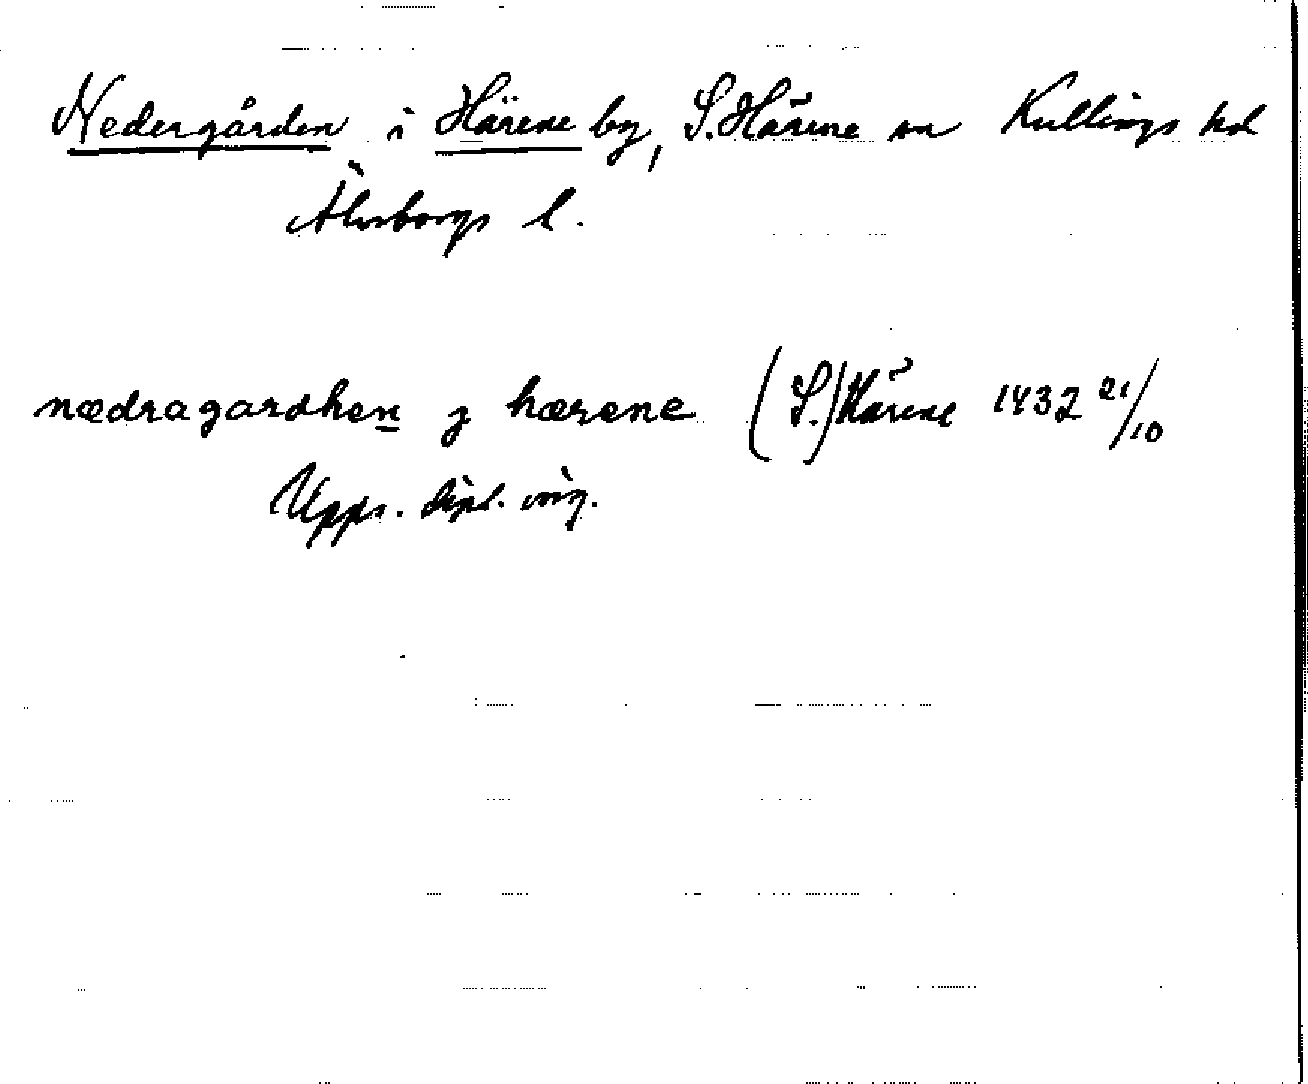 Nedergården i Härene by, S. Härene sn Kullings hd
Älvsborgs l.
nædragardhen j hærene (S.) Härene 1432 21/10
Upps. dipl. orig.